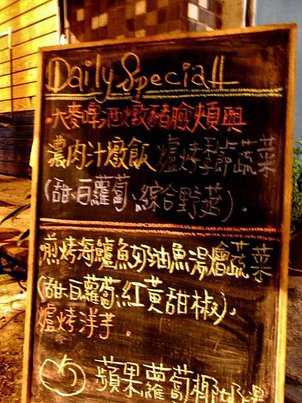 Daily Special!!
大麥啤酒燉豬臉頰與
濃肉汁燉飯 爐烤季節蔬菜
(甜豆蘿蔔、綜合野菇).
煎烤海鱸魚奶油魚湯燴蔬菜
(甜豆蘿蔔、紅黃甜椒).
爐烤洋芋.
蘋果蘿蔔椰奶